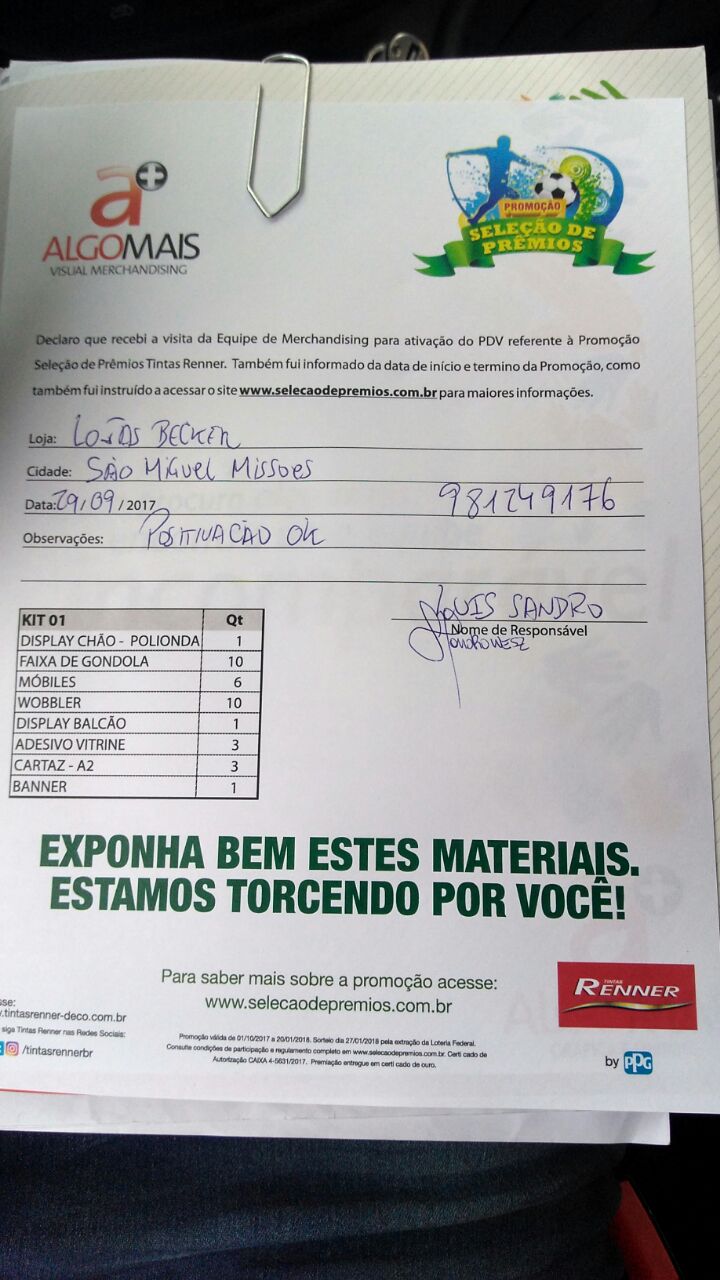 a+
ALGOMAIS
VISUAL MERCHANDISING
PROMOÇÃO
SELEÇÃO DE
PRÊMIOS
Declaro que recebi a visita da Equipe de Merchandising para ativação do PDV referente à Promoção
Seleção de Prêmios Tintas Renner. Também fui informado da data de início e termino da Promoção, como
também fui instruído a acessar o site www.selecaodepremios.com.br para maiores informações.
Loja: LOJAS BECKER
Cidade: SÃO MIGUEL MISSOES
Data: 29/09/2017 981249176
Observações: POSITIVAÇÃO OK
LUIS SANDRO
Nome de Responsável
KIT 01 Qt
DISPLAY CHÃO - POLIONDA 1
FAIXA DE GONDOLA 10
MÓBILES 6
WOBBLER 10
DISPLAY BALCÃO 1
ADESIVO VITRINE 3
CARTAZ - A2 3
BANNER 1
EXPONHA BEM ESTES MATERIAIS.
ESTAMOS TORCENDO POR VOCÊ!
Para saber mais sobre a promoção acesse:
www.selecaodepremios.com.br
sse:
.tintasrenner-deco.com.br
siga Tintas Renner nas Redes Sociais:
/tintasrennerbr
Promoção válida de 01/10/2017 a 20/01/2018. Sorteio dia 27/01/2018 pela extração da Loteria Federal.
Consulte condições de participação e regulamento completo em www.selecaodepremios.com.br. Certi cado de
Autorização CAIXA 4-5631/2017. Premiação entregue em certi cado de ouro.
TINTAS
RENNER
by PPG